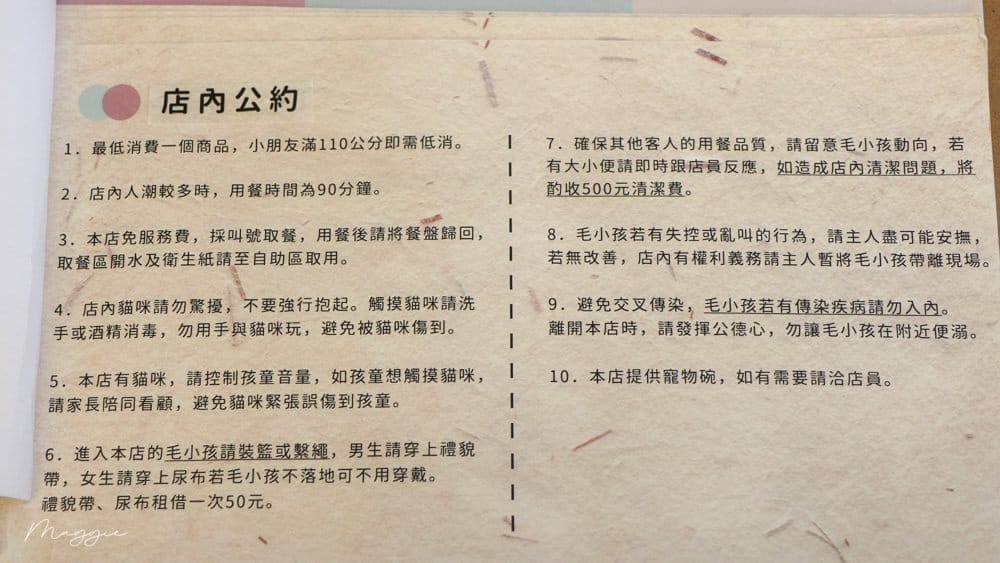 店內公約
1. 最低消費一個商品，小朋友滿110公分即需低消。
2. 店內人潮較多時，用餐時間為90分鐘。
3. 本店免服務費，採叫號取餐，用餐後請將餐盤歸回，
取餐區開水及衛生紙請至自助區取用。
4. 店內貓咪請勿驚擾，不要強行抱起。觸摸貓咪請洗
手或酒精消毒，勿用手與貓咪玩，避免被貓咪傷到。
5. 本店有貓咪，請控制孩童音量，如孩童想觸摸貓咪，
請家長陪同看顧，避免貓咪緊張誤傷到孩童。
6. 進入本店的毛小孩請裝籃或繫繩，男生請穿上禮貌
帶，女生請穿上尿布若毛小孩不落地可不用穿戴。
禮貌帶、尿布租借一次50元。
7. 確保其他客人的用餐品質，請留意毛小孩動向，若
有大小便請即時跟店員反應，如造成店內清潔問題，將
酌收500元清潔費。
8. 毛小孩若有失控或亂叫的行為，請主人盡可能安撫，
若無改善，店內有權利義務請主人暫將毛小孩帶離現場。
9. 避免交叉傳染，毛小孩若有傳染疾病請勿入內。
離開本店時，請發揮公德心，勿讓毛小孩在附近便溺。
10. 本店提供寵物碗，如有需要請洽店員。
Maggie